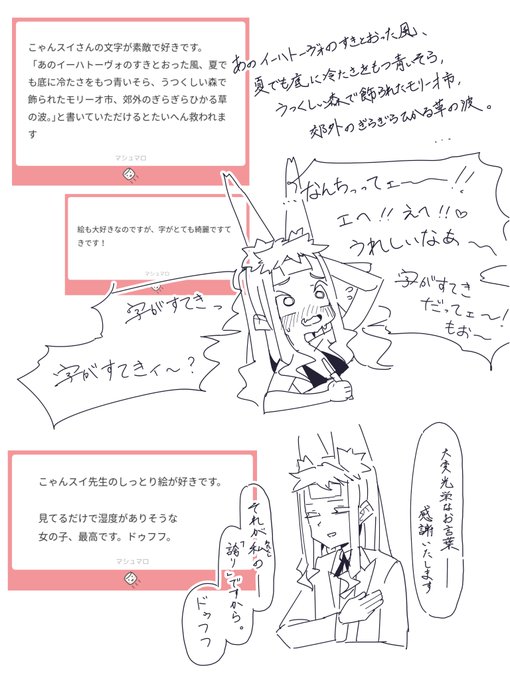 こゃんスイさんの文字が素敵で好きです。
「あのイーハトーヴォのすきとおった風、夏で
も底に冷たさをもつ青いそら、うつくしい森で
飾られたモリーオ市、郊外のぎらぎらひかる草
の波。」と書いていただけるとたいへん救われま
す
マシュマロ
あのイーハトーヴォのすきとおった風、
夏でも底に冷たさをもつ青いそら、
うつくしい森で飾られたモリーオ市、
郊外のぎらぎらひかる草の波。
...
絵も大好きなのですが、字がとても綺麗ですて
きです!
マシュマロ
...なんちってェーー!!
エヘ!!えへ!!♡
うれしいなあ〜
字がすてき
だってェ〜!
もお〜
字がすてきっ
字がすてきィ〜?
こゃんスイ先生のしっとり絵が好きです。
見てるだけで湿度がありそうな
女の子、最高です。ドゥフフ。
マシュマロ
大変光栄なお言葉——
感謝いたします
それが私の——
「誇り」ですから。
ドゥフフ